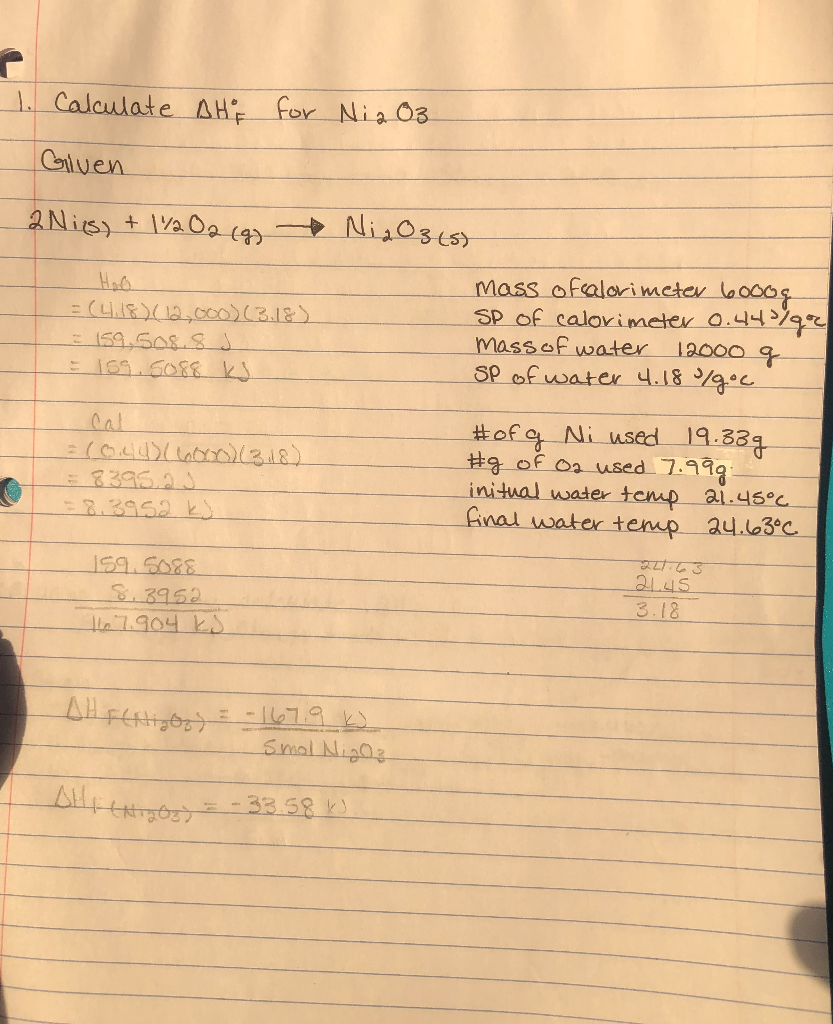 1. Calculate ΔH°F for Ni2O3
Given
2Ni(s) + 1 1/2 O2 (g) → Ni2O3 (s)
H2O
= (4.18)(12,000)(3.18)
= 159,508.8 J
= 159.5088 kJ
Mass of calorimeter 6000g
SP of calorimeter 0.44 J/g°C
Mass of water 12000 g
SP of water 4.18 J/g°C
Cal
= (0.44)(6000)(3.18)
= 8395.2 J
= 8.3952 kJ
# of g Ni used 19.33g
#g of O2 used 7.99g
initual water temp 21.45°C
final water temp 24.63°C
159.5088
8.3952
167.904 kJ
24.63
21.45
3.18
ΔHF(Ni2O3) = -167.9 kJ
5mol Ni2O3
ΔHF(Ni2O3) = -33.58 kJ